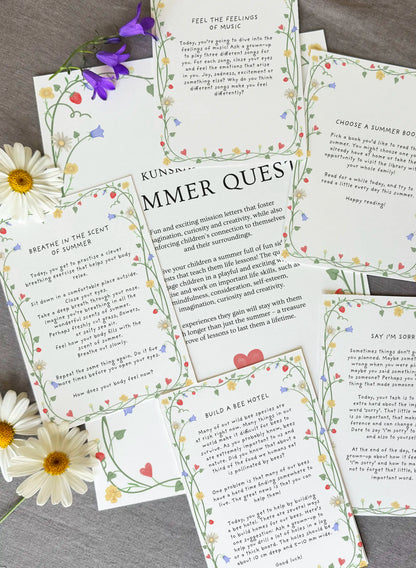 FEEL THE FEELINGS
OF MUSIC
Today, you're going to dive into the
feelings of music! Ask a grown-up
to play three different songs for
you. For each song, close your eyes
and feel the emotions that arise
in you. Joy, sadness, excitement or
something else? Why do you think
different songs make you feel
differently?
CHOOSE A SUMMER BOO
Pick a book you'd like to read th
summer. You might choose one yo
already have at home or take th
opportunity to visit the library wit
your whole family!
Read for a while today, and try t
read a little every day this summer.
Happy reading!
KUNSKA
MMER QUEST
Fun and exciting mission letters that foster
imagination, curiosity and creativity, while also
nforcing children's connection to themselves
and their surroundings.
ive your children a summer full of fun si
sts that teach them life lessons! The qu
age children in a playful and exciting w
ise and work on important life skills, such as
mindfulness, consideration, self-esteem,
imagination, curiosity and creativity.
experiences they gain will stay with them
longer than just the summer – a treasure
rove of lessons to last them a lifetime.
BREATHE IN THE SCENT
OF SUMMER
Today, you get to practice a clever
breathing exercise that helps your body
Sit down in a comfortable place outside.
Close your eyes.
Take a deep breath through your nose.
Imagine you're breathing in all the
wonderful scents of summer.
Perhaps freshly cut grass, flowers,
or salty sea air.
Feel how your body fills with the
scent of summer.
Breathe out slowly.
Repeat the same thing again. Do it five
more times before you open your eyes.
How does your body feel now?
SAY I'M SORR
Sometimes things don't g
you planned. Maybe you
maybe you said something
to someone? Perhaps you
thing that made someone
Today, your task is to t
extra hard about the imp
word 'sorry'. That little
is so important, that make
and are able to forgive
Dare to say "I'm sorry" to
and also to yoursel
At the end of the day, te
grown-up about how it fee
"I'm sorry" and how to m
not to forget that little,
important word.
BUILD A BEE HOTEL
Many of our wild bee species are
at risk right now. Many things in our
world make it difficult for bees to
survive. As you probably know, bees
are extremely important to us and
nature. Did you know that about a
third of the food we humans eat
is pollinated by bees?
One problem is that many of our bees
have a hard time finding somewhere to
live. The great news is that you can
help them!
Today, you get to help by building
a bee hotel. There are several ways
to build homes for our bees. Here's
one suggestion: Ask a grown-up to
help you drill a lot of holes in a log
or a thick board. The holes should be
about 10 cm deep and 5–10 mm wide.
Good luck!